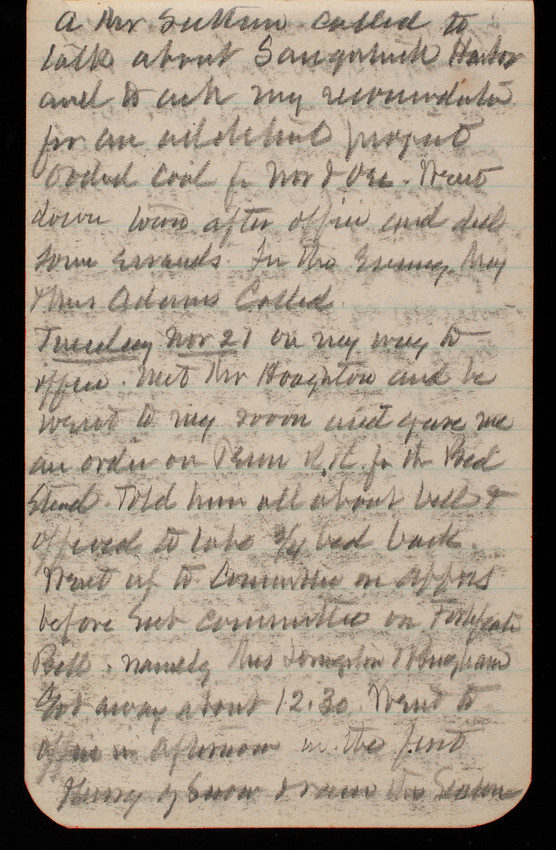 A Mr called to
talk about Harbor
and to ask my
for an project
Ordered coal for Nov & Dec. Went
down town after office and did
some errands. In the Evening Maj
& Mrs Adams Called
Tuesday Nov 21 on my way to
office. Met Mr Houghton and he
went to my room and gave me
an order on Penn R.R. for the Bed
Stead. Told him all about bed &
offered to take 3/4 bed back.
Went up to Committee on Appros
before Sub committee on
Bill. namely Livingston & Bingham
Got away about 12.30. Went to
office in afternoon in the first
of Snow & rain this Season